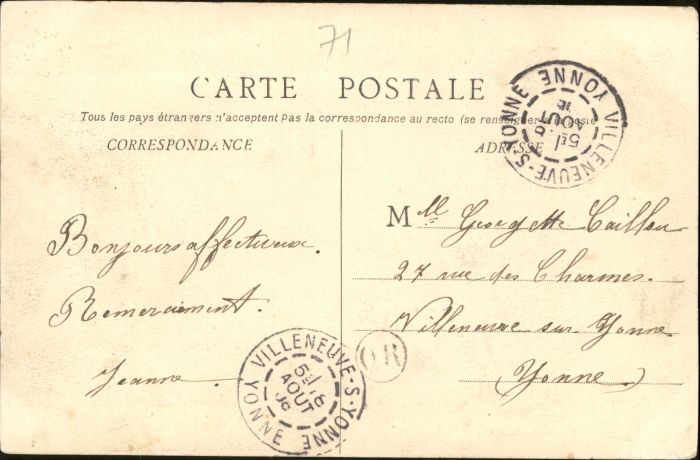 71
CARTE POSTALE
Tous les pays étrangers n'acceptent pas la correspondance au recto (se renseigner à la poste
CORRESPONDANCE
ADRESSE
Bonjours affectueux.
Remerciement.
Jeanne.
Mlle Georgette Caillou
27 rue des Charmes.
Villeneuve sur Yonne
Yonne
VILLENEUVE-S-YONNE
YONNE
AOUT
VILLENEUVE-S-YONNE
YONNE
AOUT
06
OR